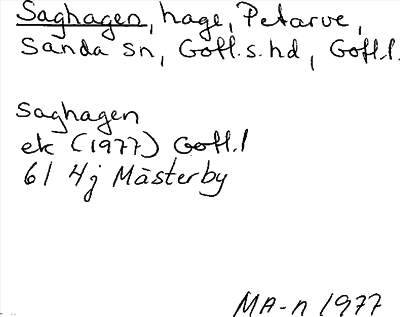 Saghagen, hage, Petarve,
Sanda sn, Gotl. s. hd, Gotl. l.
Saghagen
ek (1977) Gotl. l
6I 4j Mästerby
MA-n 1977